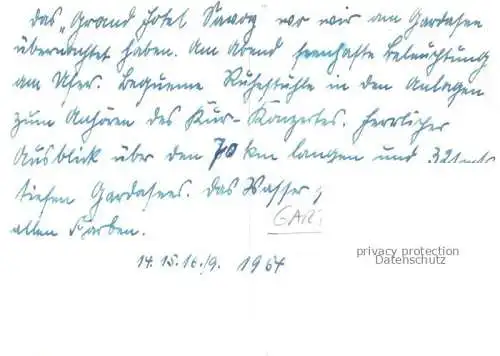 Das „Grand Hotel Savoy wo wir am Gardasee
übernachtet haben. Am Abend feenhafte Beleuchtung
am Ufer. Bequeme Ruhestühle in den Anlagen
zum Anhören des Kur-Konzertes. Herrlicher
Ausblick über den 70 km langen und
tiefen Gardasees. Das Wasser
GAR
allen Farben.
privacy protection
Datenschutz
14. 15. 16./9. 1964